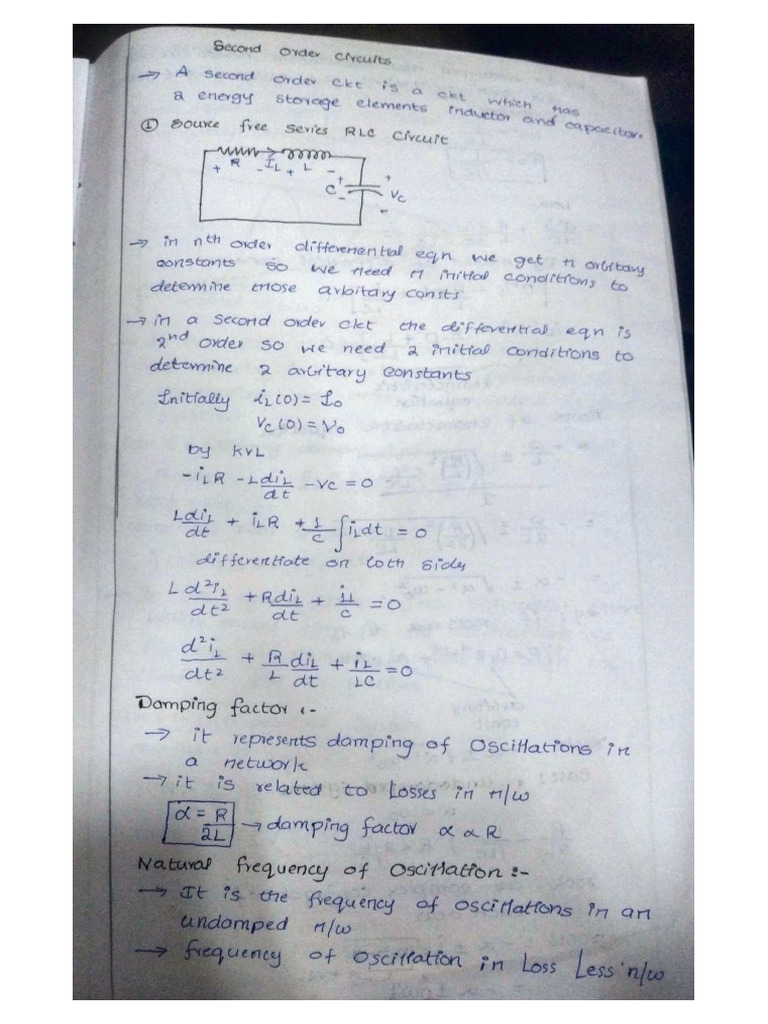 Second Order Circuits
→ A second order ckt is a ckt which has
2 energy storage elements inductor and capacitor.
① Source free Series RLC Circuit
+ R - IL + L -
+ C - + VC -
→ in nth order differential eqn we get n orbitary
constants so we need n initial conditions to
determine those arbitary consts
→ in a second order ckt the differential eqn is
2nd order so we need 2 initial conditions to
determine 2 arbitary constants
Initially iL(0) = I0
VC(0) = V0
by KVL
-iLR - L diL/dt - VC = 0
L diL/dt + iLR + 1/C ∫iLdt = 0
differentiate on both sides
L d²iL/dt² + R diL/dt + iL/C = 0
d²iL/dt² + R/L diL/dt + iL/LC = 0
Damping factor :-
→ it represents damping of Oscillations in
a network
→ it is related to Losses in n/w
α = R/2L → damping factor α α R
Natural frequency of Oscillation :-
→ It is the frequency of oscillations in an
undamped n/w
→ frequency of Oscillation in Loss Less n/w